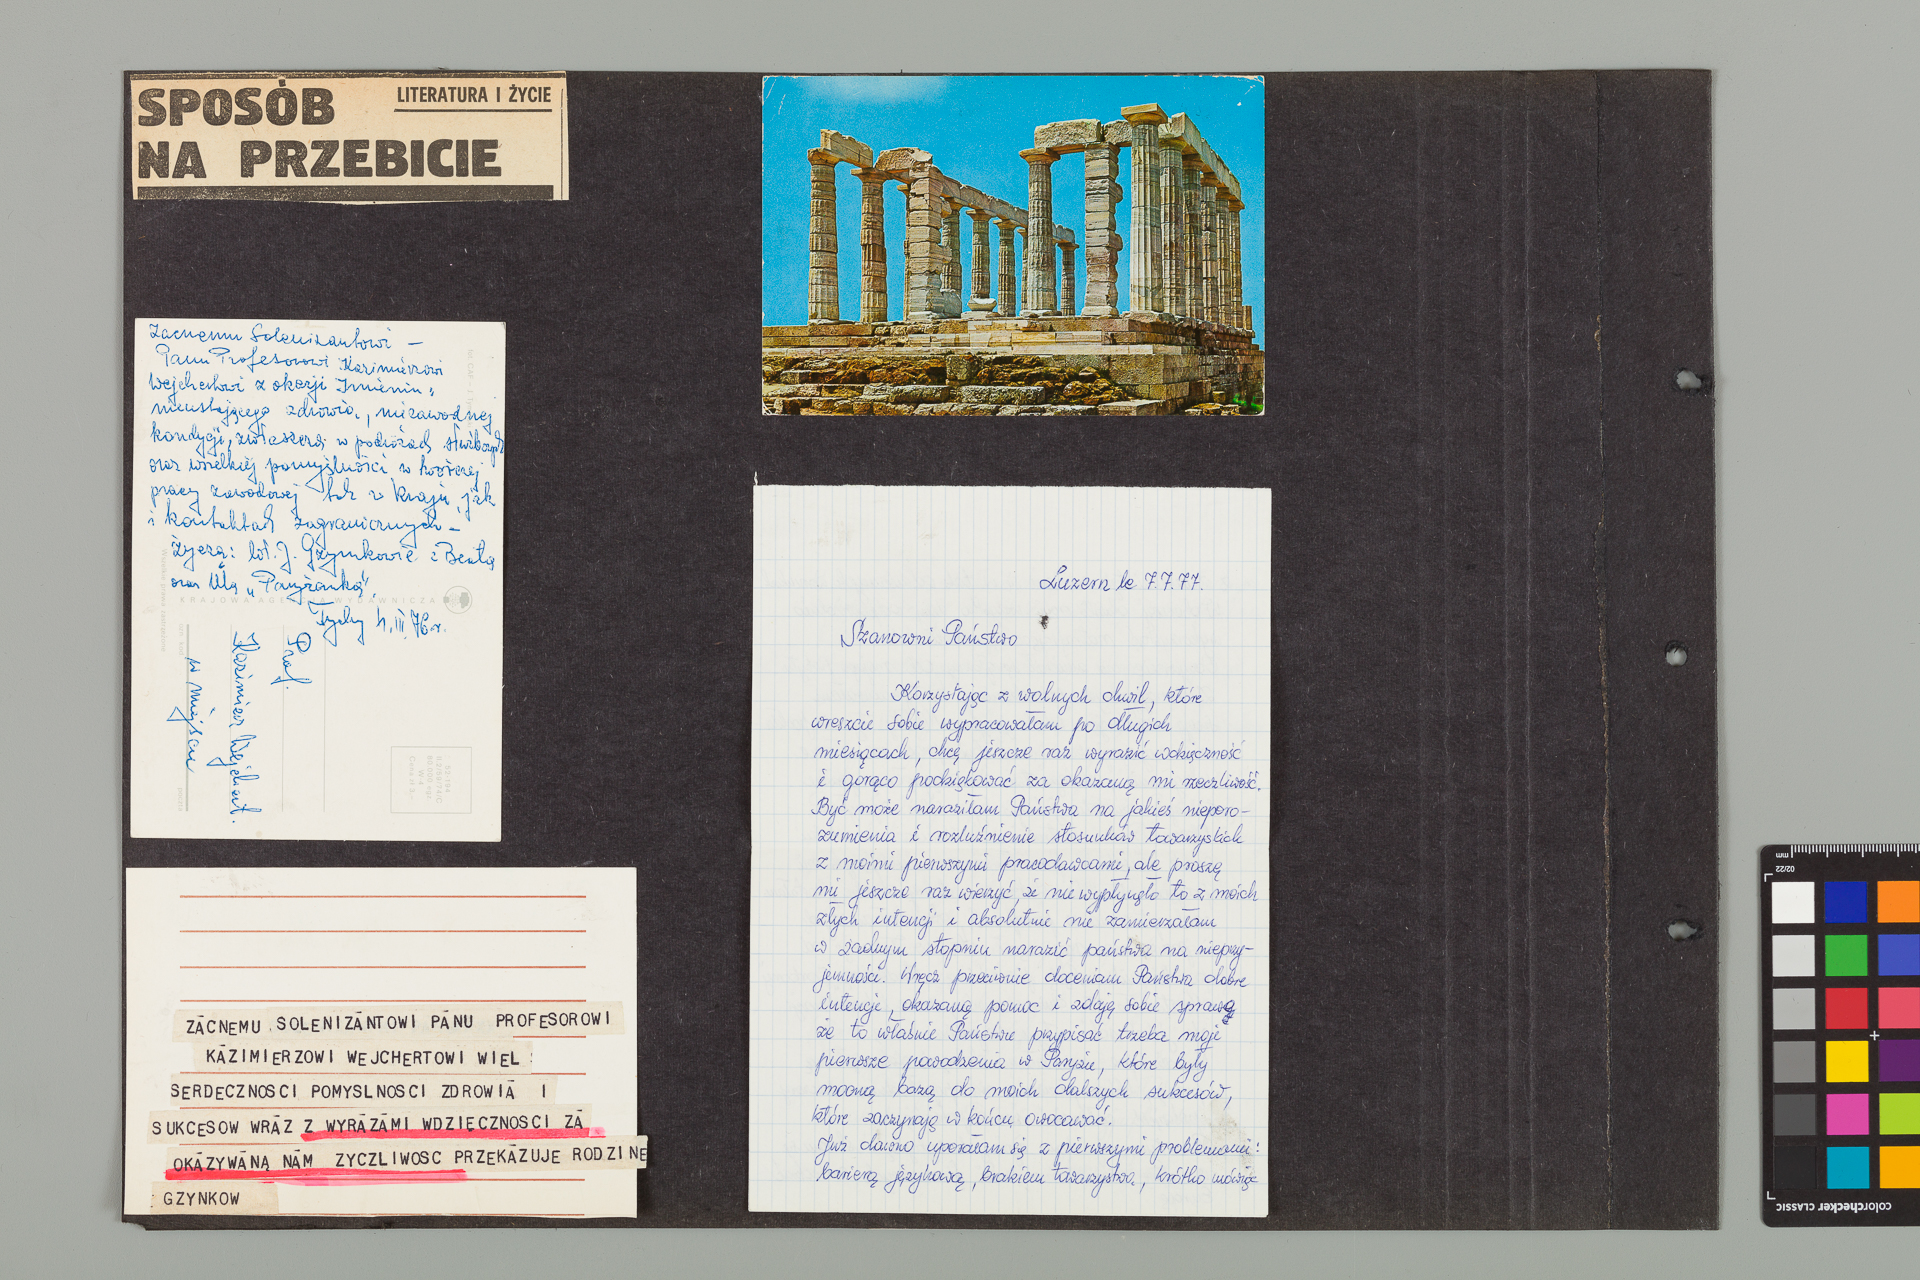 SPOSÓB
NA PRZEBICIE
LITERATURA I ŻYCIE
Zacnemu Solenizantowi –
Panu Profesorowi Kazimierzowi
Wejchertowi z okazji Imienin,
nieustającego zdrowia, niezawodnej
kondycji, zwłaszcza w podróżach służbowych
oraz wszelkiej pomyślności w twórczej
pracy zawodowej tak w kraju, jak
i kontaktach zagranicznych –
Życzą: J. Gzynkowie i Beata
oraz Ula "Paryżanka",
Tychy 4.III.76 r.
KRAJOWA AGENCJA WYDAWNICZA
Prof.
Kazimierz Wejchert.
w miejscu
ZACNEMU SOLENIZANTOWI PANU PROFESOROWI
KAZIMIERZOWI WEJCHERTOWI WIEL
SERDECZNOSCI POMYSLNOSCI ZDROWIA I
SUKCESOW WRAZ Z WYRAZAMI WDZIĘCZNOSCI ZA
OKAZYWANĄ NAM ZYCZLIWOSC PRZEKAZUJE RODZINE
GZYNKOW
Luzern le 7.7.77.
Szanowni Państwo
Korzystając z wolnych chwil, które
wreszcie sobie wypracowałam po długich
miesiącach, chcę jeszcze raz wyrazić wdzięczność
i gorąco podziękować za okazaną mi rzeczliwość.
Być może naraziłam Państwa na jakieś nieporo-
zumienia i rozluźnienie stosunków towarzyskich
z moimi pierwszymi pracodawcami, ale proszę
mi jeszcze raz wierzyć, że nie wypłynęło to z moich
złych intencji i absolutnie nie zamierzałam
w żadnym stopniu narazić państwa na nieprzy-
jemności. Wręcz przeciwnie doceniam Państwa dobre
intencje, okazaną pomoc i zdaję sobie sprawę
że to właśnie Państwu przypisać trzeba moje
pierwsze powodzenia w Paryżu, które były
mocną bazą do moich dalszych sukcesów,
które zaczynają w końcu owocować.
Już dawno uporałam się z pierwszymi problemami:
barierą językową, brakiem towarzystwa, krótko mówiąc
mm
02/22
colorchecker CLASSIC